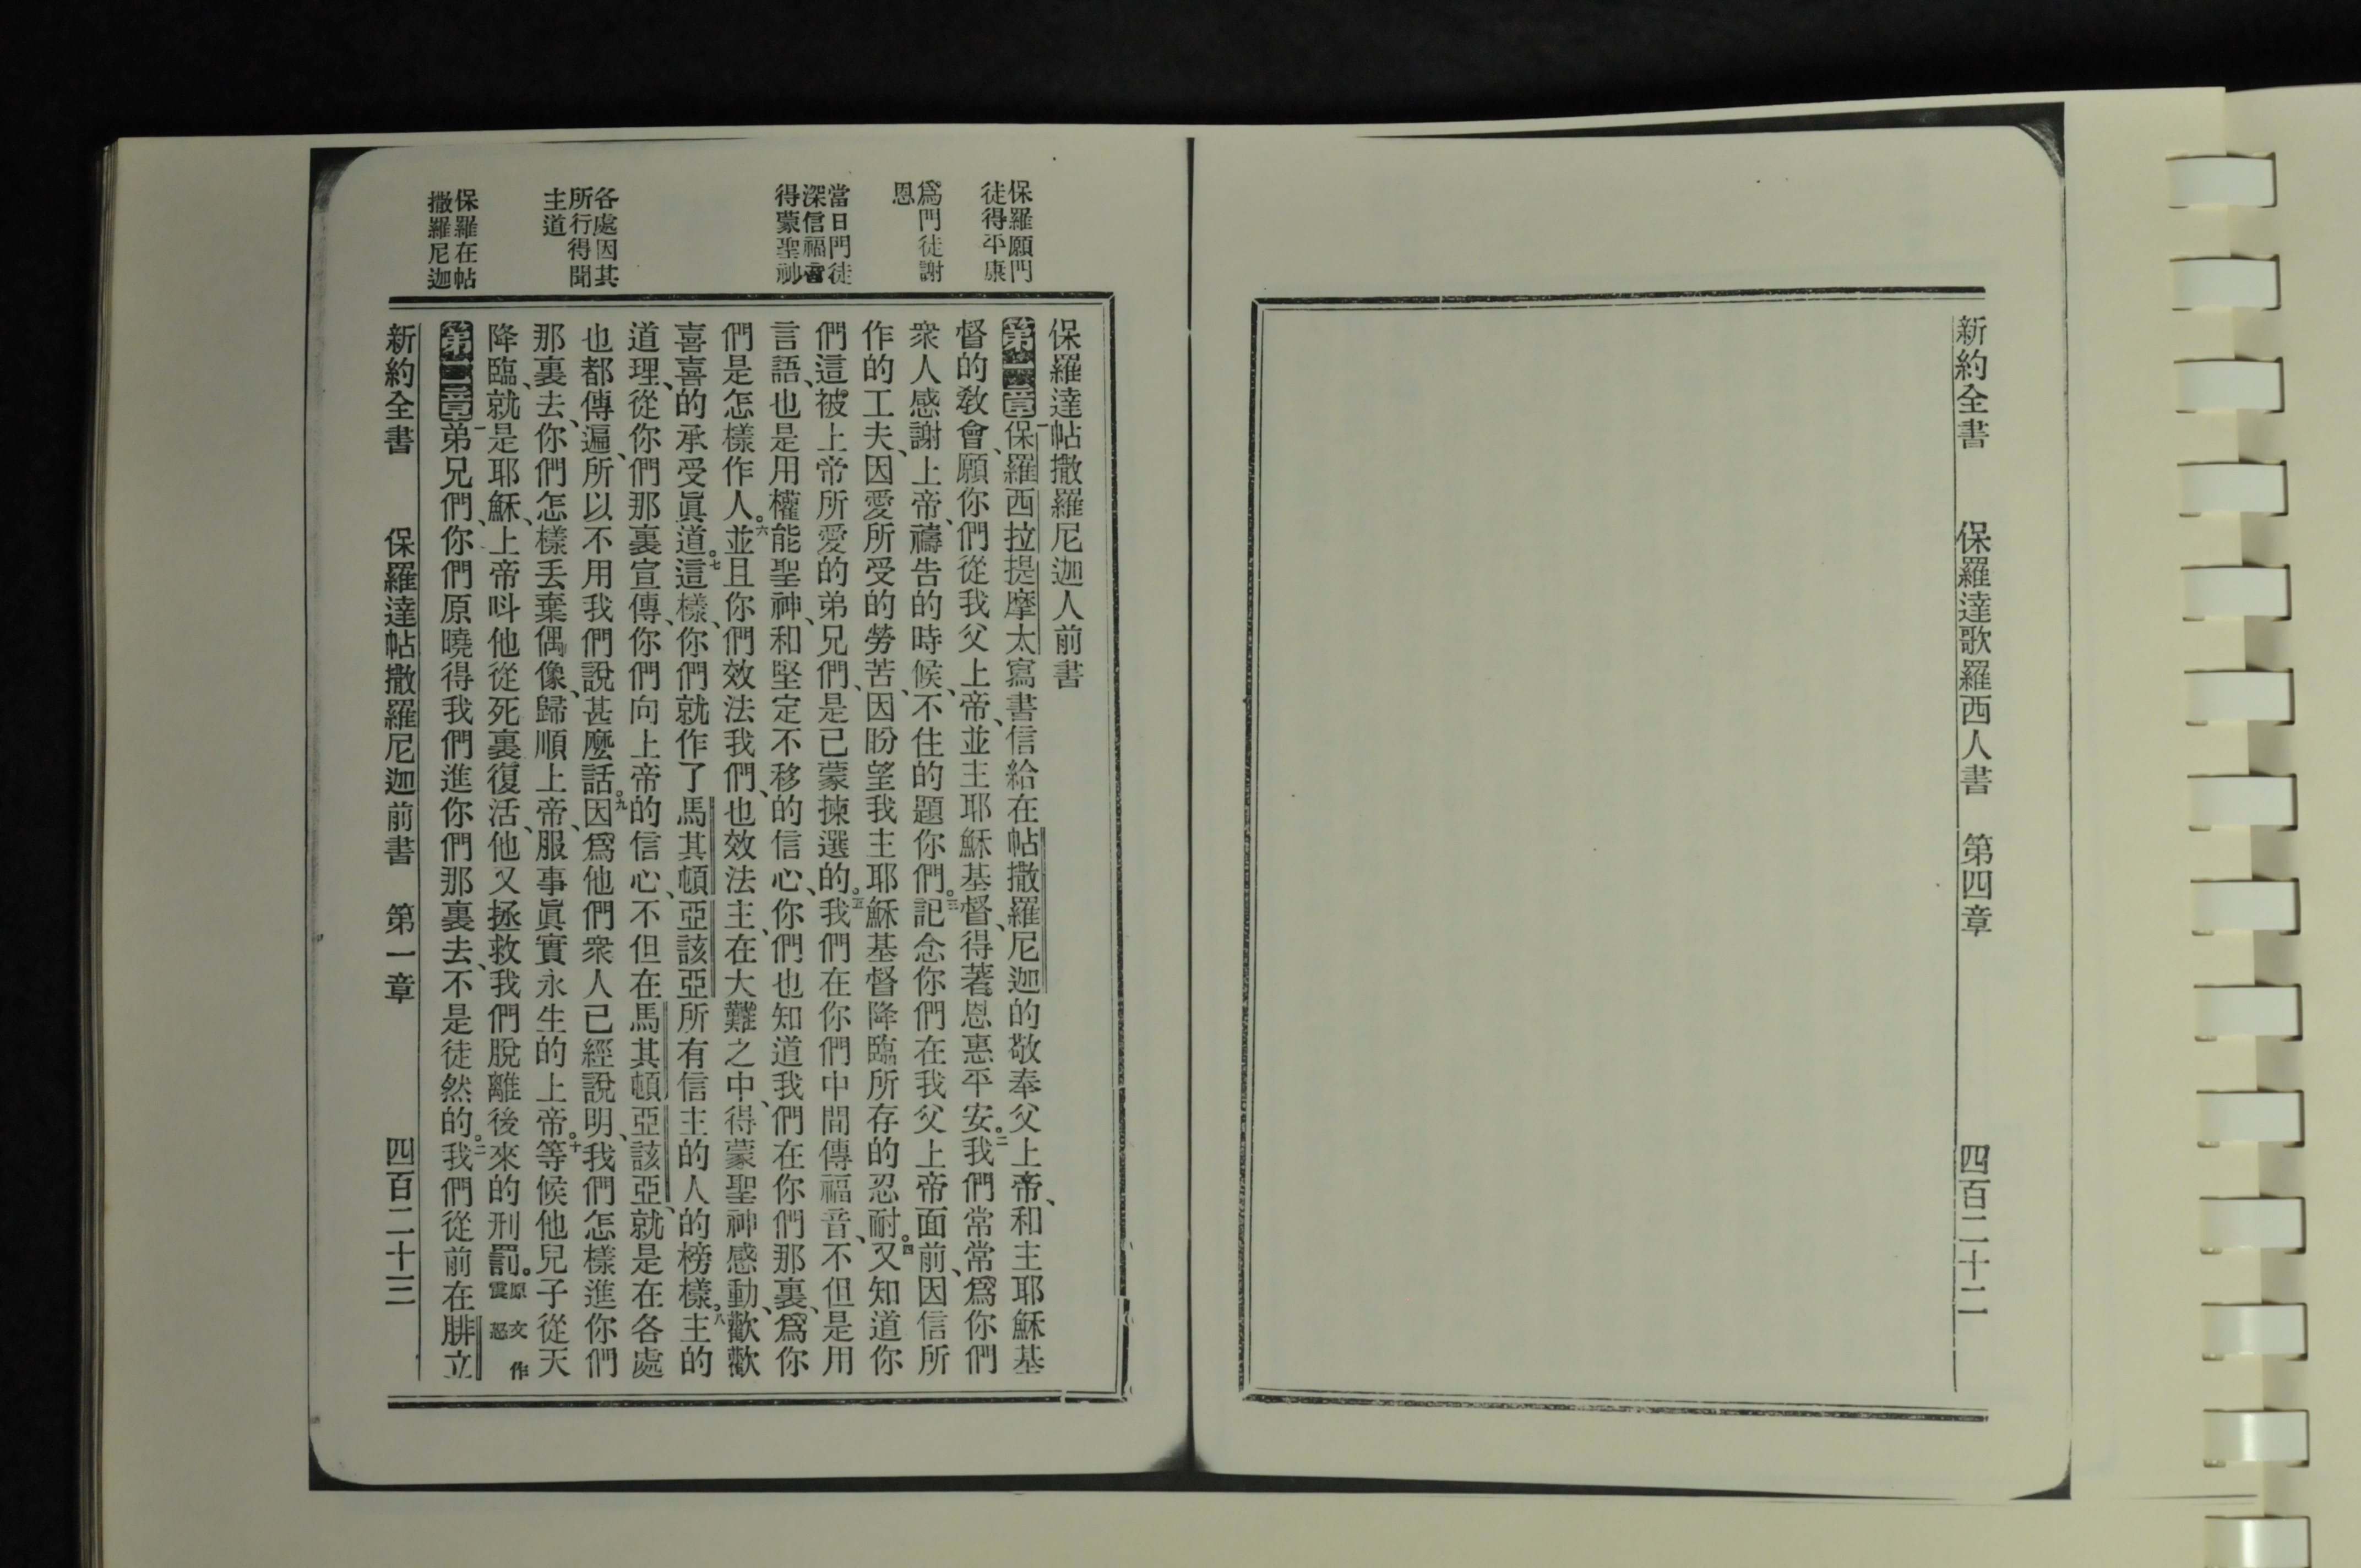 新約全書 保羅達歌羅西人書 第四章 四百二十二
保羅願門
徒得平康
爲門徒謝
恩
當日門徒
深信福音
得蒙聖神
各處因其
所行得聞
主道
保羅在帖
撒羅尼迦
保羅達帖撒羅尼迦人前書
第一章一保羅西拉提摩太寫書信給在帖撒羅尼迦的敬奉父上帝、和主耶穌基
督的敎會、願你們從我父上帝、並主耶穌基督、得著恩惠平安。二我們常常爲你們
衆人感謝上帝、禱告的時候、不住的題你們。三記念你們在我父上帝面前、因信所
作的工夫、因愛所受的勞苦、因盼望我主耶穌基督降臨所存的忍耐。四又知道你
們這被上帝所愛的弟兄們、是已蒙揀選的。五我們在你們中間傳福音、不但是用
言語、也是用權能聖神、和堅定不移的信心、你們也知道我們在你們那裏、爲你
們是怎樣作人。六並且你們效法我們、也效法主、在大難之中、得蒙聖神感動、歡歡
喜喜的承受眞道。七這樣、你們就作了馬其頓亞該亞所有信主的人的榜樣。八主的
道理、從你們那裏宣傳、你們向上帝的信心、不但在馬其頓亞該亞、就是在各處
也都傳遍、所以不用我們說甚麼話。九因爲他們衆人已經說明、我們怎樣進你們
那裏去、你們怎樣丟棄偶像、歸順上帝、服事眞實永生的上帝。十等候他兒子從天
降臨、就是耶穌、上帝呌他從死裏復活、他又拯救我們脫離後來的刑罰。原文作震怒
第二章一弟兄們、你們原曉得我們進你們那裏去、不是徒然的。二我們從前在腓立
新約全書 保羅達帖撒羅尼迦前書 第一章 四百二十三